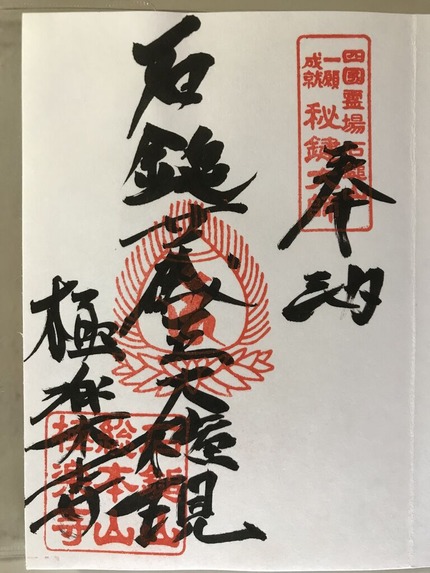 四國霊場
一願
成就
秘鍵大師
奉納
石鎚蔵王大権現
極楽寺
石鎚山
総本山
極楽寺